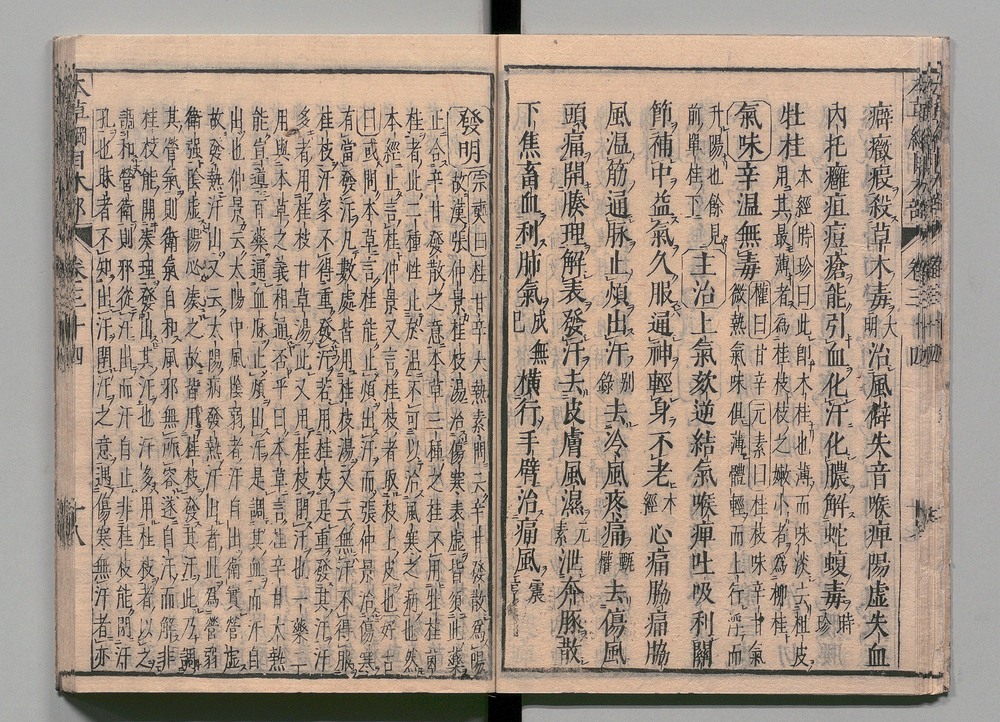 癖癥瘕殺草木毒大明治風僻失音喉痺陽虛失血
內托癰疽痘瘡能引血化汗化膿解蛇蝮毒時珍
牡桂本經時珍曰此即木桂也薄而味淡去粗皮
用其最薄者為桂枝枝之嫩小者為柳桂
氣味辛溫無毒權曰甘辛元素曰桂枝味辛甘氣
微熱氣味俱薄體輕而上行浮而
升陽也餘見
前單桂下主治上氣欬逆結氣喉痺吐吸利關
節補中益氣久服通神輕身不老本經心痛脇痛脇
風溫筋通脉止煩出汗別錄去冷風疼痛甄權去傷風
頭痛開腠理解表發汗去皮膚風濕元素泄奔豚散
下焦畜血利肺氣成無已橫行手臂治痛風震
發明宗奭曰桂甘辛大熱素問云辛甘發散為陽
故漢張仲景桂枝湯治傷寒表虛皆須此藥
正合辛甘發散之意本草三種之桂不用牡桂菌
桂者此二種性止于溫不可以治風寒之病也然
本經止言桂仲景又言桂枝者取枝上皮也好古
曰或問本草言桂能止煩出汗而張仲景治傷寒
有當發汗凡數處皆用桂枝湯又云無汗不得服
桂枝汗家不得重發汗若用桂枝是重發其汗汗
多者用桂枝甘草湯此又用桂枝閉汗也一藥二
用與本草之義相通否乎曰本草言桂辛甘大熱
能宣導百藥通血脉止煩出汗是調其血而汗自
出也仲景云太陽中風陰弱者汗自出衛實營虛
故發熱汗出又云太陽病發熱汗出者此為營弱
衛強陰虛陽必湊之故皆用桂枝發其汗此乃調
其營氣則衛氣自和風邪無所容遂自汗而解非
桂枝能開腠理發出其汗也汗多用桂枝者以之
調和營衛則邪從汗出而汗自止非桂枝能閉汗
孔也昧者不知出汗閉汗之意遇傷寒無汗者亦